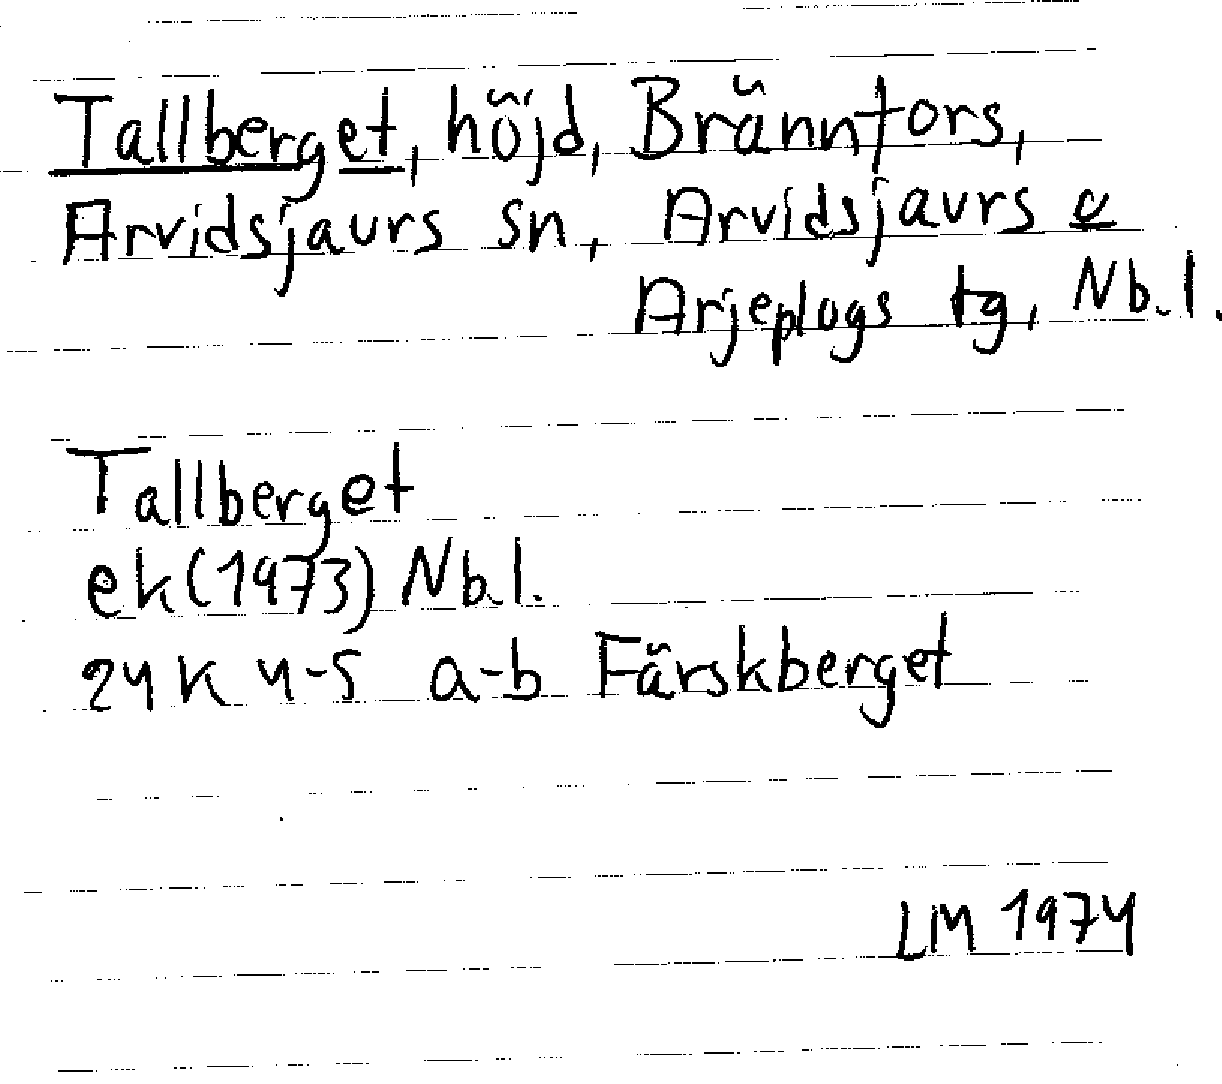 Tallberget, höjd, Brännfors,
Arvidsjaurs sn, Arvidsjaurs o
Arjeplogs tg, Nb.l.
Tallberget
ek(1973) Nb.l.
24K 4-5 a-b Färskberget
LM 1974